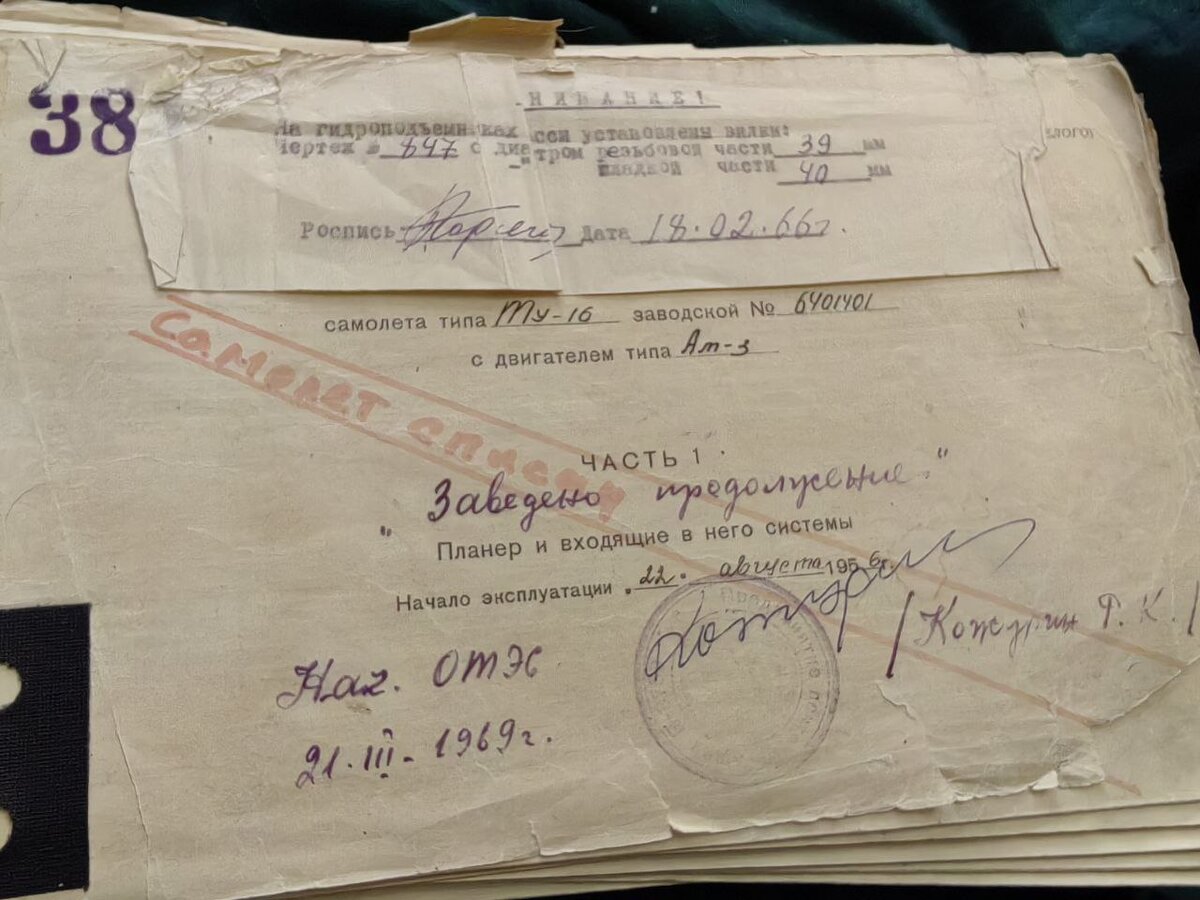 38
НИМАНИЕ!
На гидроподъемниках сси установлены вилки:
Чертеж № 847 с диа тром резьбовой части 39 мм
-"- гладкой части 40 мм
Роспись Дата 18.02.66г.
самолета типа Ту-16 заводской № 6401401
с двигателем типа Ам-3
Самолет списан
ЧАСТЬ 1
"Заведено продолжение"
Планер и входящие в него системы
Начало эксплуатации "22" августа 1956г.
Нач. ОТЭС /Кожурин Г.К./
21.III-1969г.